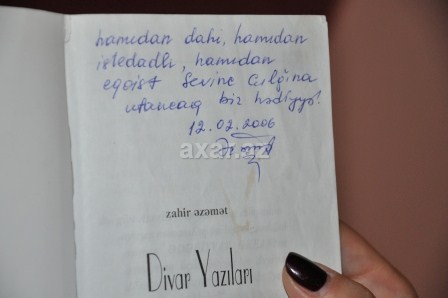 hamıdan dahi, hamıdan
istedadlı, hamıdan
eqoist Sevinc Çılğına
utancaq bir hədiyyə!
12.02.2006
axar.az
zahir əzəmət
Divar Yazıları